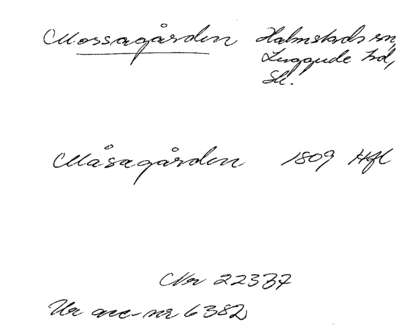 Mossagården Halmstads sn,
Luggude hd,
Sk.
Måsagården 1809 Hfl
Nr 22337
Ur acc-nr 6382